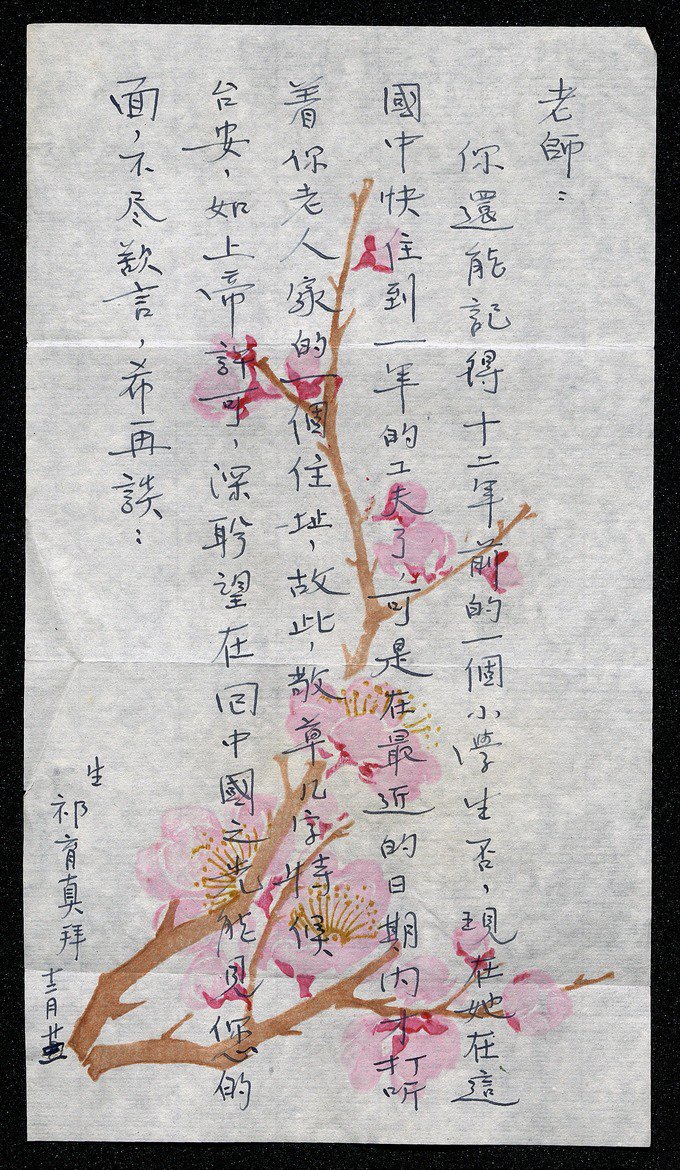 老師：
你還能記得十二年前的一個小學生否，現在她在這
國中快住到一年的工夫了，可是在最近的日期內才打听
着你老人家的一個住址，故此，敬草几字特候
台安，如上帝許可，深盼望在回中國之先能見您的
面，不尽歉言，希再談：
生
祁育真拜
十二月廿五